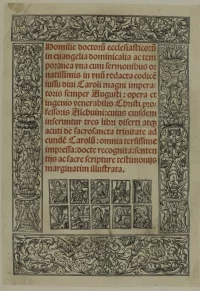 Homilie doctorū ecclesiasticorū
in euangelia dominicalia ac tem
poranea vna cum sermonibus or
natissimis in vnū redacta codicē
iussu diui Caroli magni impera
toris semper Augusti: opera et
ingenio venerabilis Christi pro
fessoris Alchuini: cuius eiusdem
inseruntur tres libri diserti arg
acuti de sacrosancta trinitate ad
eundē Carolū: omnia tersissime
impressa: docte recognita: senten
tijs ac sacre scripture testimonijs
marginatim illustrata.